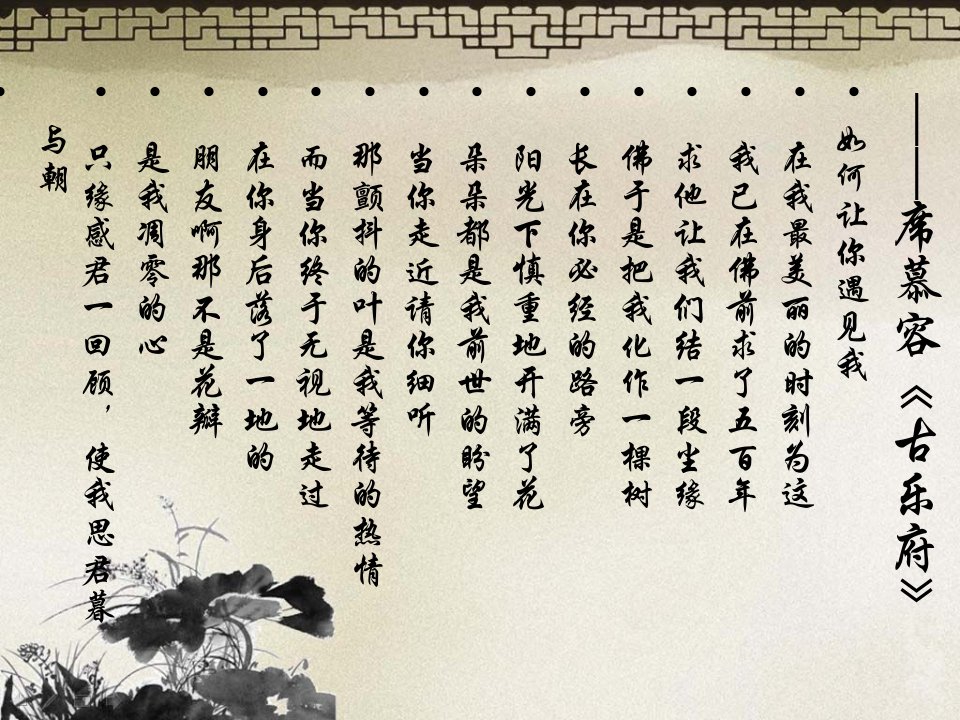 ——席慕容《古乐府》
如何让你遇见我
在我最美丽的时刻为这
我已在佛前求了五百年
求他让我们结一段尘缘
佛于是把我化作一棵树
长在你必经的路旁
阳光下慎重地开满了花
朵朵都是我前世的盼望
当你走近请你细听
那颤抖的叶是我等待的热情
而当你终于无视地走过
在你身后落了一地的
朋友啊那不是花瓣
是我凋零的心
只缘感君一回顾，使我思君暮
与朝